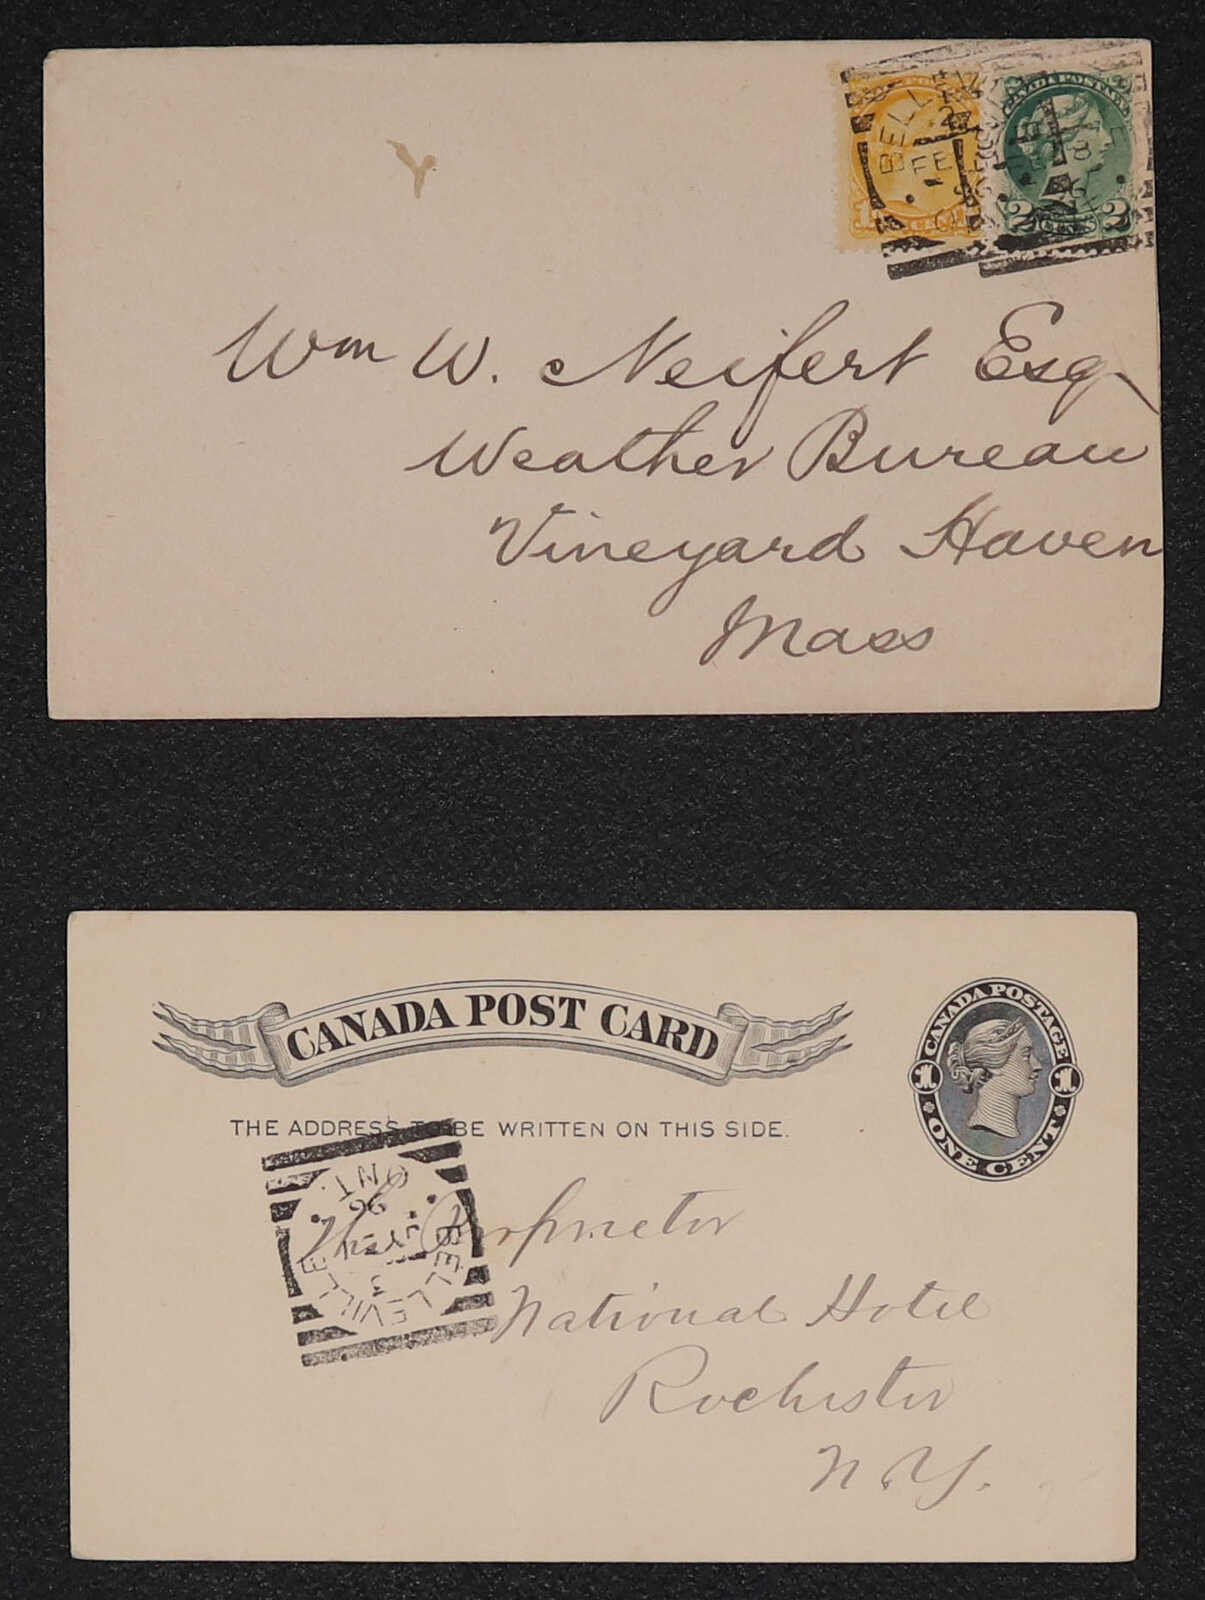 BELLE
27
FE
CANADA POSTAGE
2 CENTS 2
Wm W. Neifert Esq
Weather Bureau
Vineyard Haven
Mass
CANADA POST CARD
CANADA POSTAGE
1 1
ONE CENT
THE ADDRESS TO BE WRITTEN ON THIS SIDE.
BELLEVILLE
ONT.
96
3
The Proprietor
National Hotel
Rochester
N.Y.